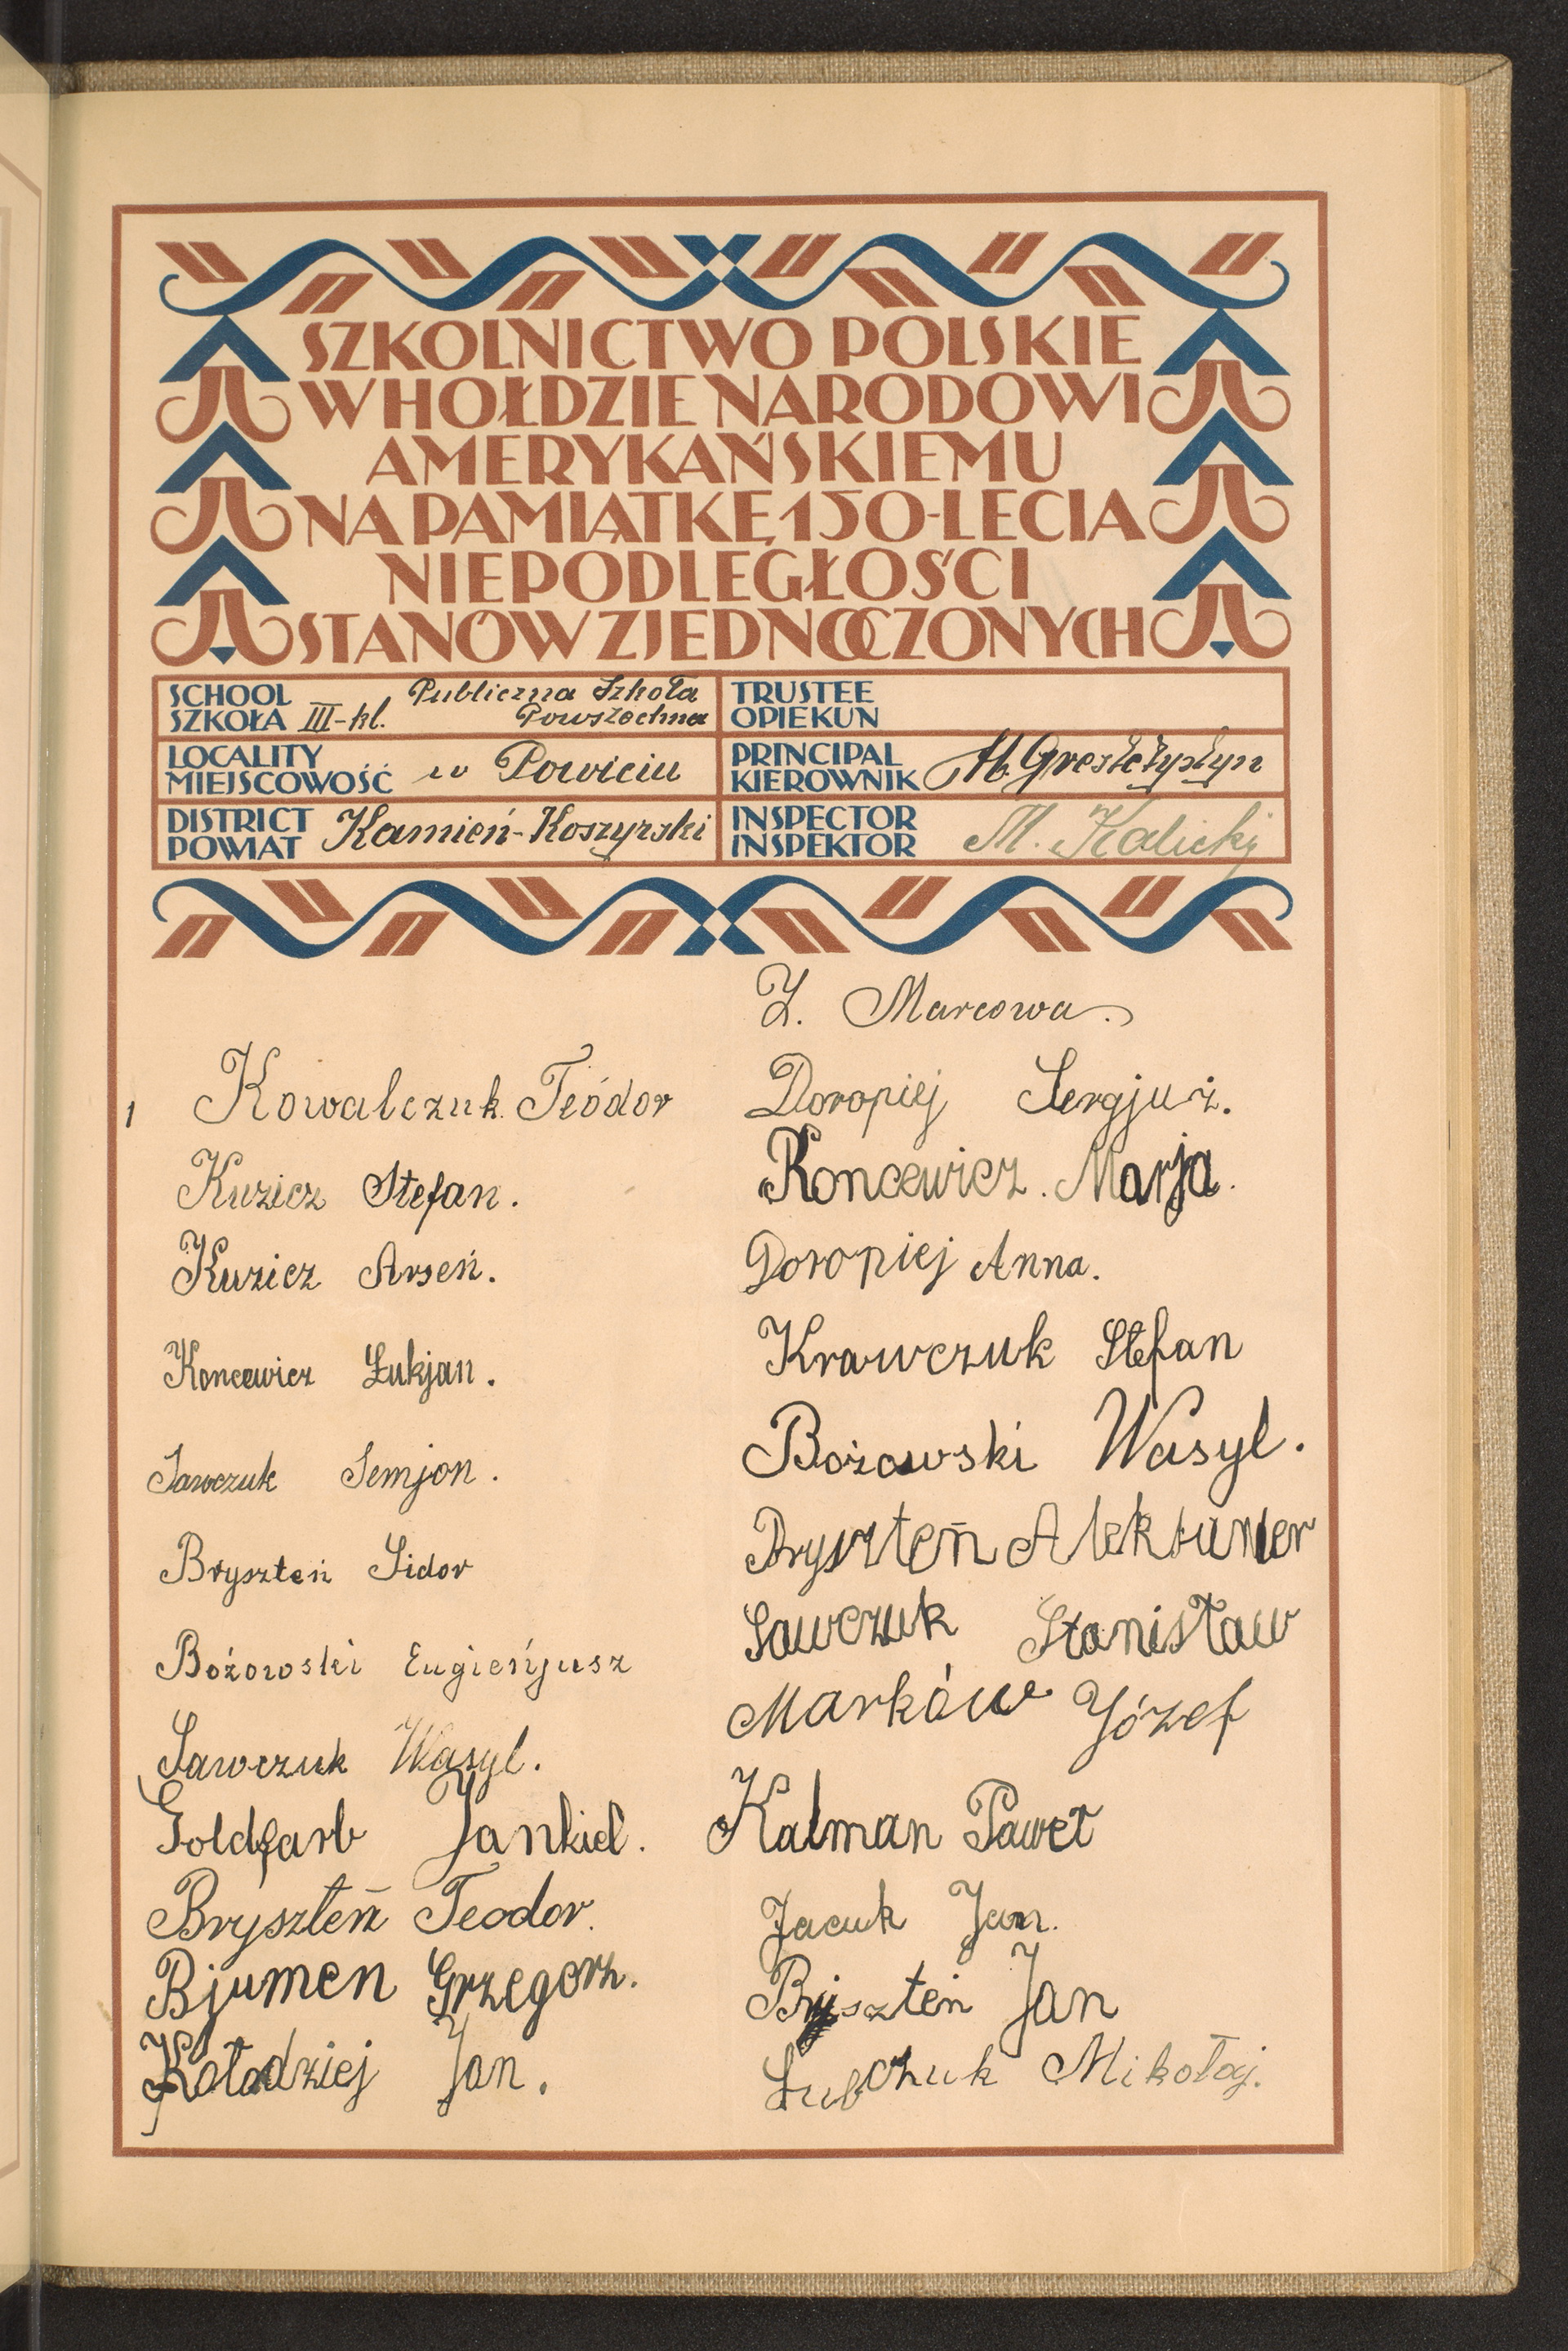 SZKOLNICTWO POLSKIE
W HOŁDZIE NARODOWI
AMERYKAŃSKIEMU
NA PAMIĄTKĘ 150-LECIA
NIEPODLEGŁOŚCI
STANÓW ZJEDNOCZONYCH
SCHOOL
SZKOŁA III-kl. Publiczna Szkoła
Powszechna
LOCALITY
MIEJSCOWOŚĆ w Powiciu
DISTRICT
POWIAT Kamień-Koszyrski
TRUSTEE
OPIEKUN
PRINCIPAL
KIEROWNIK
INSPECTOR
INSPEKTOR M. Kalicki
Z. Marcowa.
1 Kowalczuk Teódor
Kuzicz Stefan.
Kuzicz Arseń.
Koncewicz Łukjan.
Sawczuk Semjon.
Bryszteń Sidor
Bożowski Eugieńjusz
Sawczuk Wasyl.
Goldfarb Jankiel.
Bryszteń Teodor.
Bjumen Grzegorz.
Kołodziej Jan.
Doropiej Sergjuż.
Koncewicz. Marja.
Doropiej Anna.
Krawczuk Stefan
Bożowski Wasyl.
Bryszteń
Sawczuk Stanisław
Marków Józef
Kalman Paweł
Jacuk Jan.
Bryszteń Jan
Łubczuk Mikołaj.